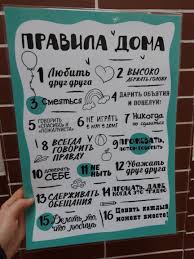 ПРАВИЛА ДОМА
1 Любить
друг друга
2 ВЫСОКО
ДЕРЖАТЬ ГОЛОВУ
3 Смеяться
4 ДАРИТЬ ОБЪЯТИЯ
И ПОЦЕЛУИ!
5 ГОВОРИТЬ
«СПАСИБО» И
«ПОЖАЛУЙСТА»
6 НЕ ИГРАТЬ
В МЯЧ В ДОМЕ
7 Никогда
не сдаваться
8 ВСЕГДА
ГОВОРИТЬ
ПРАВДУ
9 ПРОЖЕВАТЬ,
10 ДОВЕРЯТЬ
СЕБЕ
11 НЕ
НЫТЬ
12 Уважать
друг друга
13 СДЕРЖИВАТЬ
ОБЕЩАНИЯ
14 ПРОЩАТЬ, ДАЖЕ
КОГДА ЭТО ТРУДНО
15 Делать то,
что любишь
16 Ценить каждый
момент вместе!